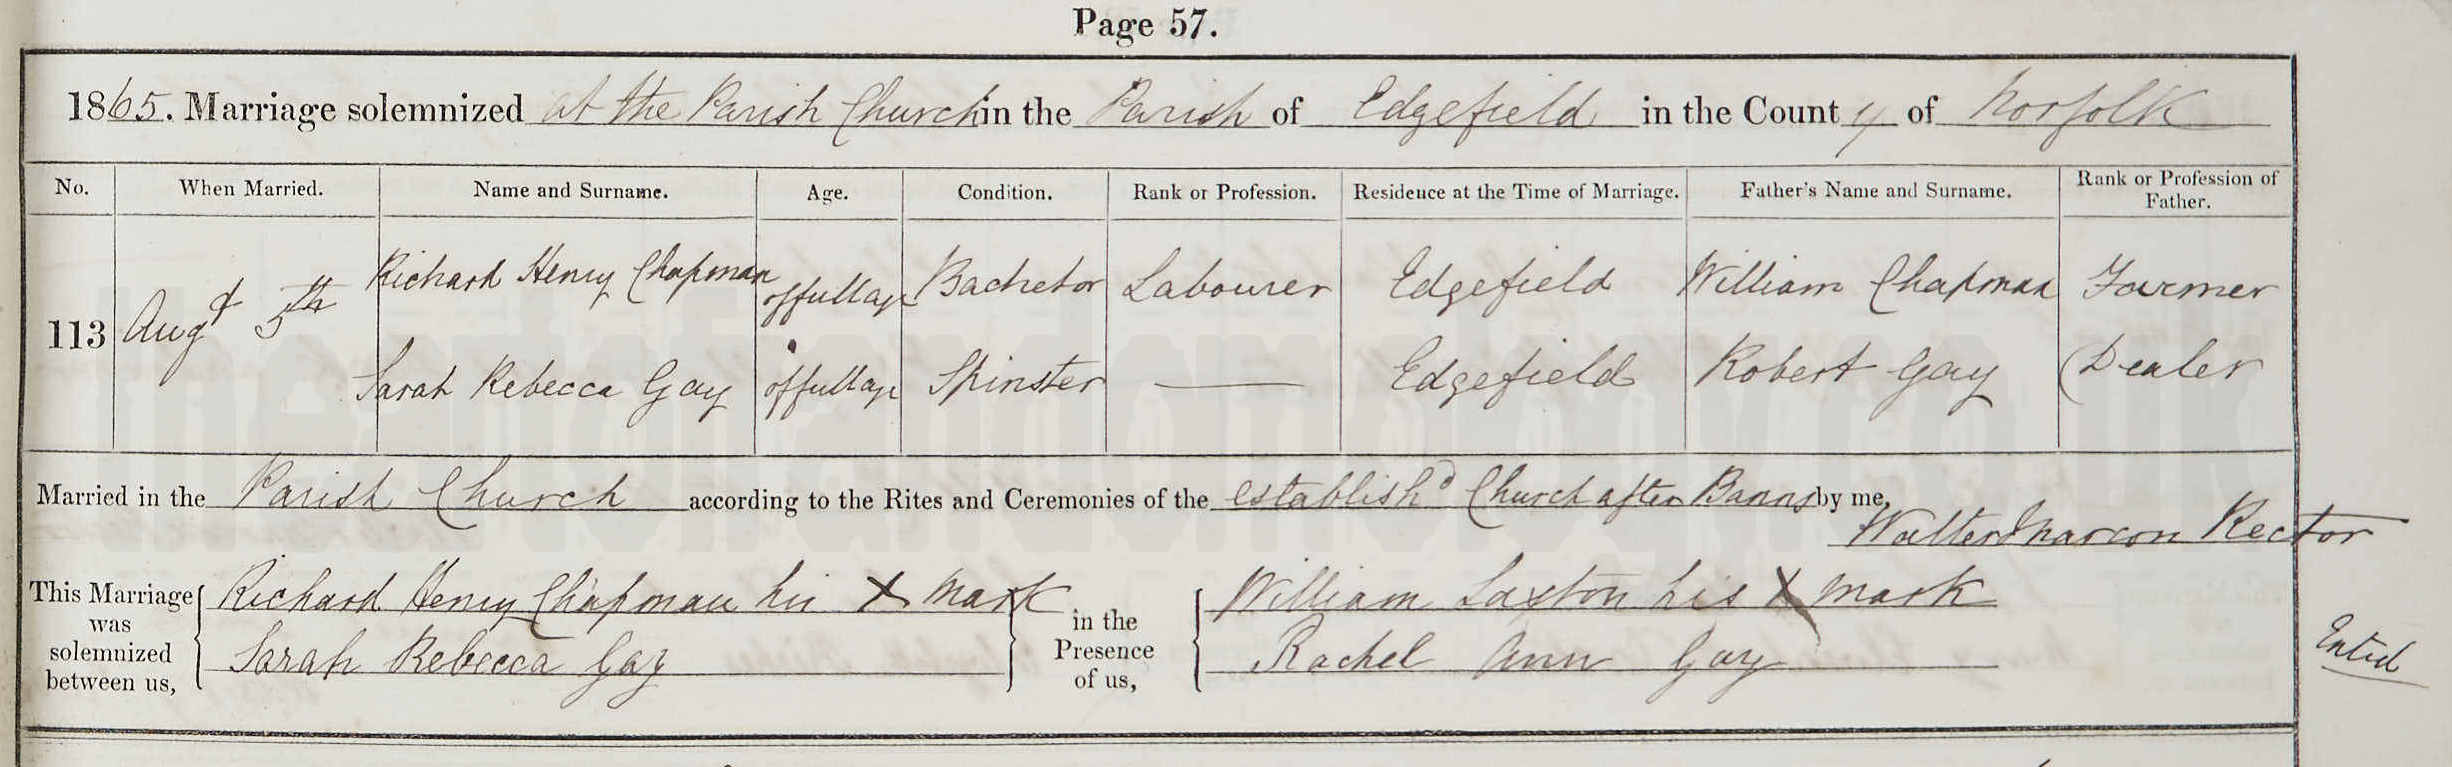 Page 57.
1865. Marriage solemnized at the Parish Church in the Parish of Edgefield in the County of Norfolk
No. When Married. Name and Surname. Age. Condition. Rank or Profession. Residence at the Time of Marriage. Father's Name and Surname. Rank or Profession of Father.
113 Augt 5th Richard Henry Chapman of full age Bachelor Labourer Edgefield William Chapman Farmer
Sarah Rebecca Gay of full age Spinster — Edgefield Robert Gay Dealer
Married in the Parish Church according to the Rites and Ceremonies of the establishd Church after Banns by me,
Walter Marcon Rector
This Marriage was solemnized between us, Richard Henry Chapman his X Mark in the Presence of us, William Laxton his X mark
Sarah Rebecca Gay Rachel Ann Gay
Entd